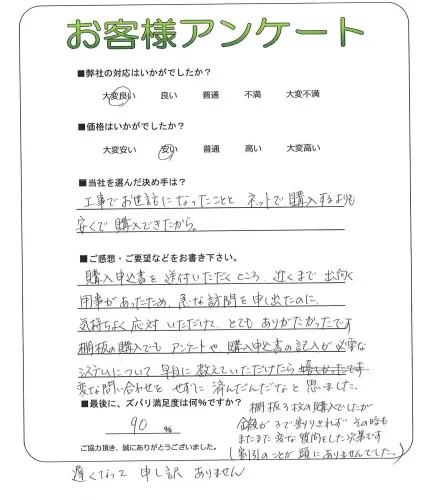 お客様アンケート
■弊社の対応はいかがでしたか？
大変良い 良い 普通 不満 大変不満
■価格はいかがでしたか？
大変安い 安い 普通 高い 大変高い
■当社を選んだ決め手は？
工事でお世話になったことと ネットで購入するよりも
安くで購入できたから。
■ご感想・ご要望などをお書き下さい。
購入申込書を送付いただくところ 近くまで出向く
用事があったため、急な訪問を申し出たのに、
気持ちよく応対いただけて、とてもありがたかったです
棚板の購入でも アンケートや 購入申込書の記入が必要な
システムについて 早目に教えていただけたら 嬉しかったです
変な問い合わせを せずに 済んだんだなと 思いました。
■最後に、ズバリ満足度は何%ですか？
90 %
棚板3枚の購入でしたが
金額が3で割りきれず その時も
またまた 変な質問をした次第です
(割引のことが頭にありませんでした。)
ご協力頂き、誠にありがとうございました。
遅くなって 申し訳 ありません